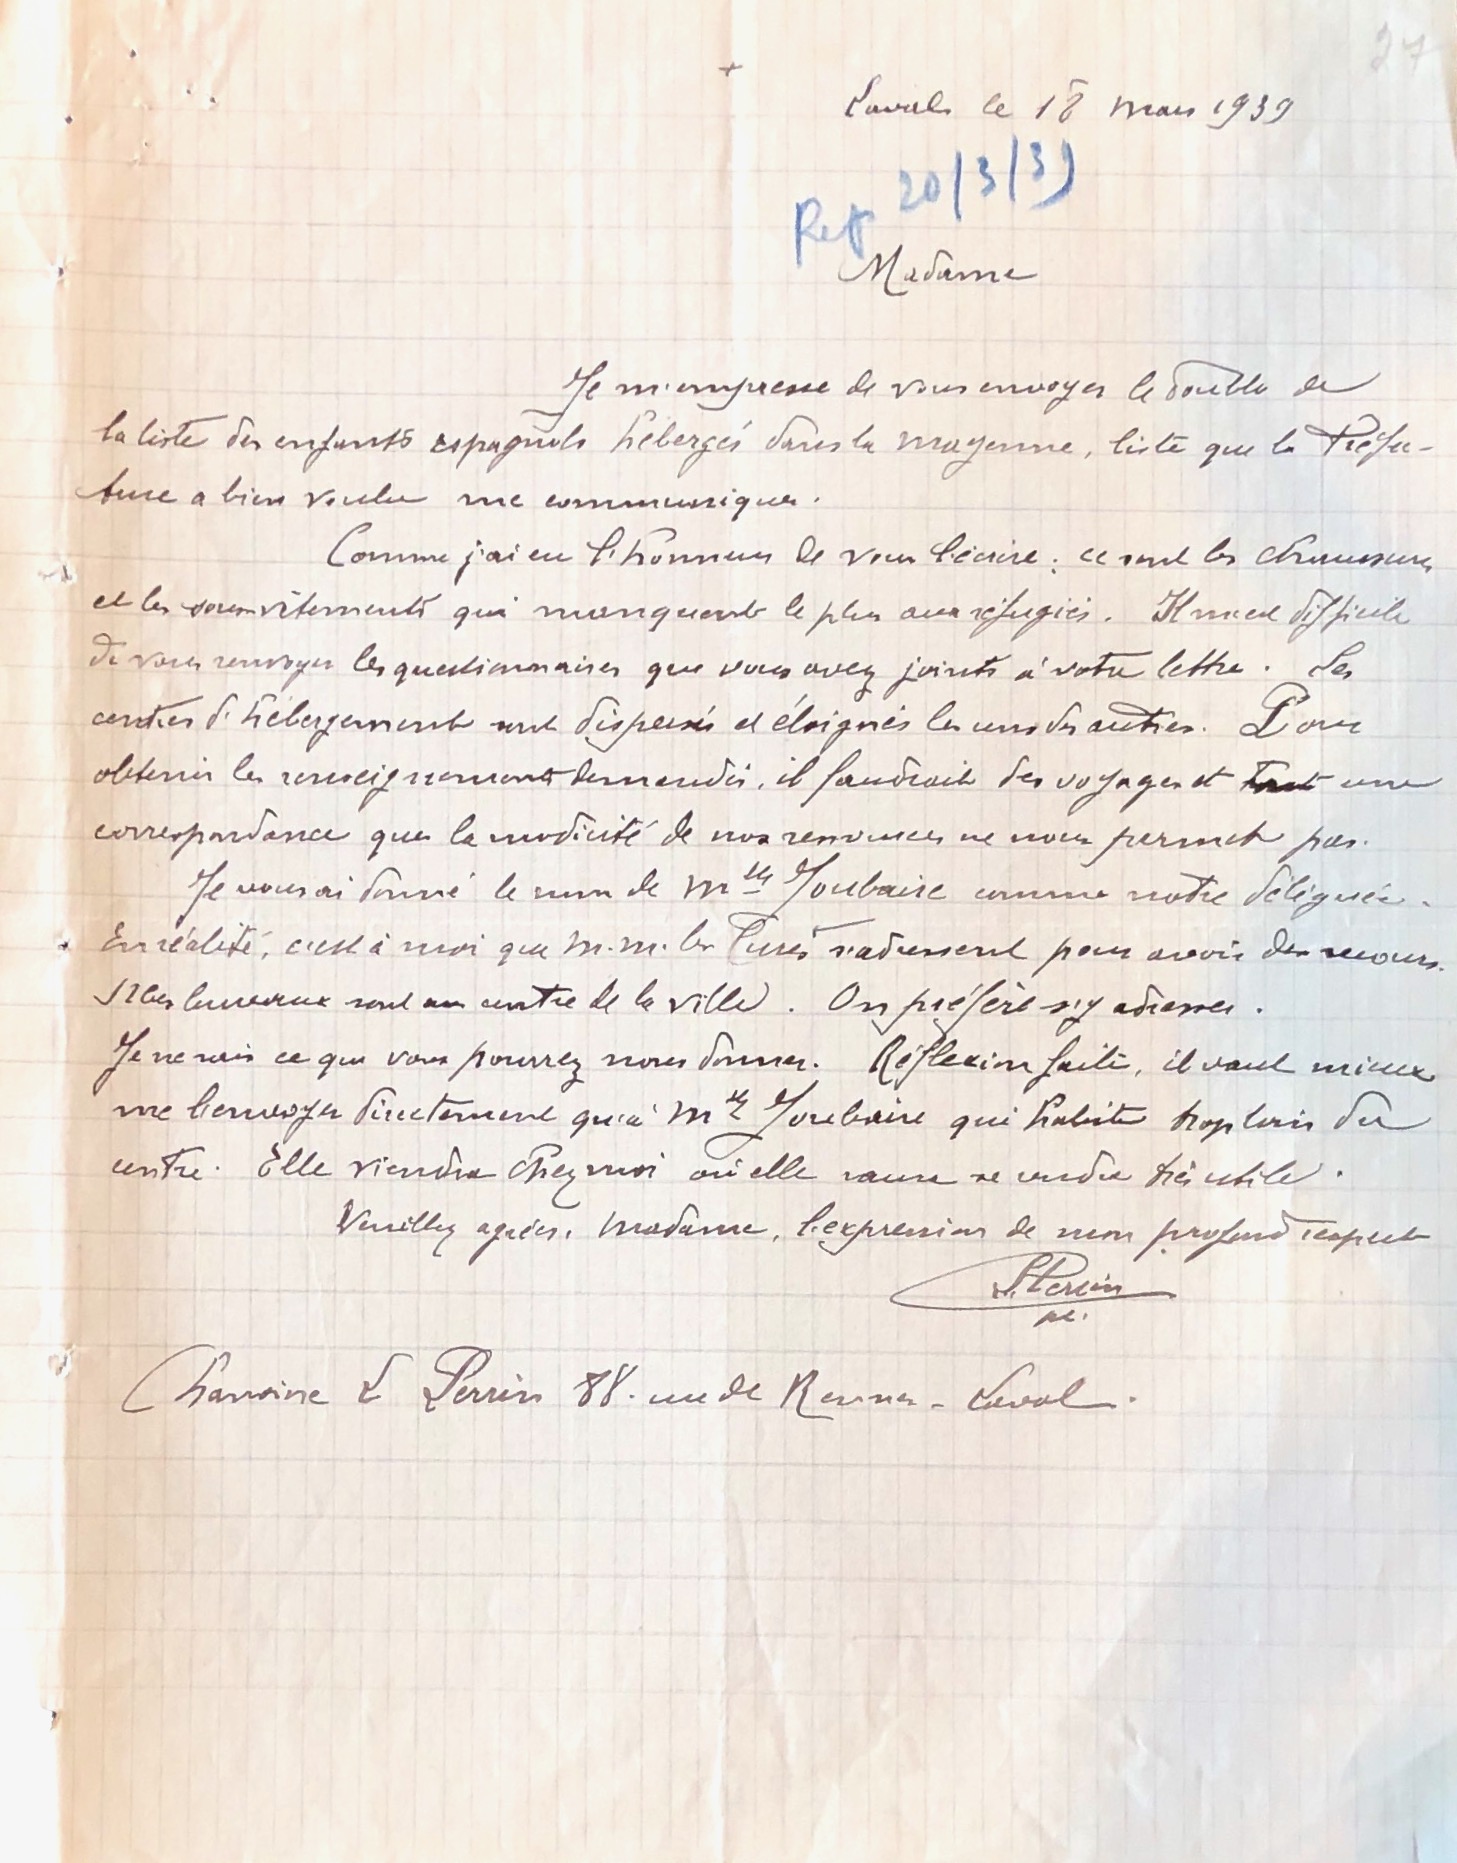 27
Laval le 18 mars 1939
20/3/39
Rep
Madame
Je m'empresse de vous envoyer le double de
la liste des enfants espagnols hébergés dans la Mayenne, liste que la Préfec-
ture a bien voulu me communiquer.
Comme j'ai eu l'honneur de vous l'écrire : ce sont les chaussures
et les sous-vêtements qui manquent le plus aux réfugiés. Il m'est difficile
de vous renvoyer les questionnaires que vous avez joints à votre lettre. Les
centres d'hébergement sont dispersés et éloignés les uns des autres. Pour
obtenir les renseignements demandés, il faudrait des voyages et une
correspondance que la modicité de nos ressources ne nous permet pas.
Je vous ai donné le nom de Mlle Joubaire comme notre déléguée.
En réalité, c'est à moi que M.M. les Curés s'adressent pour avoir des secours.
Mes bureaux sont au centre de la ville. On préfère s'y adresser.
Je ne sais ce que vous pourrez nous donner. Réflexion faite, il vaut mieux
me l'envoyer directement qu'à Mlle Joubaire qui habite trop loin du
centre. Elle viendra chez moi où elle saura se rendre très utile.
Veuillez agréer, Madame, l'expression de mon profond respect
L Perrin
Chanoine L Perrin 88. rue de Rennes - Laval.